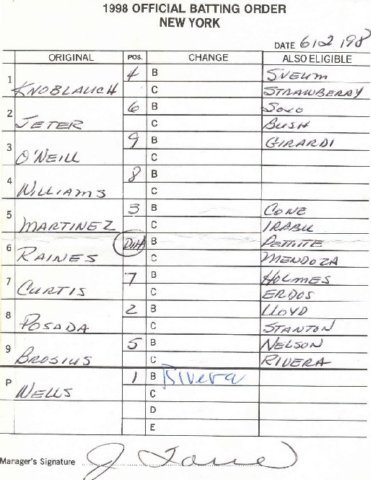 1998 OFFICIAL BATTING ORDER
NEW YORK
DATE 6/2/98
ORIGINAL POS. CHANGE ALSO ELIGIBLE
1 KNOBLAUCH 4 B SVEUM
C STRAWBERRY
2 JETER 6 B SOJO
C BUSH
3 O'NEILL 9 B GIRARDI
C
4 WILLIAMS 8 B
C
5 MARTINEZ 3 B CONE
C IRABU
6 RAINES DH B PETTITE
C MENDOZA
7 CURTIS 7 B HOLMES
C ERDOS
8 POSADA 2 B LLOYD
C STANTON
9 BROSIUS 5 B NELSON
C RIVERA
P WELLS 1 B Rivera
C
D
E
Manager's Signature J Torre